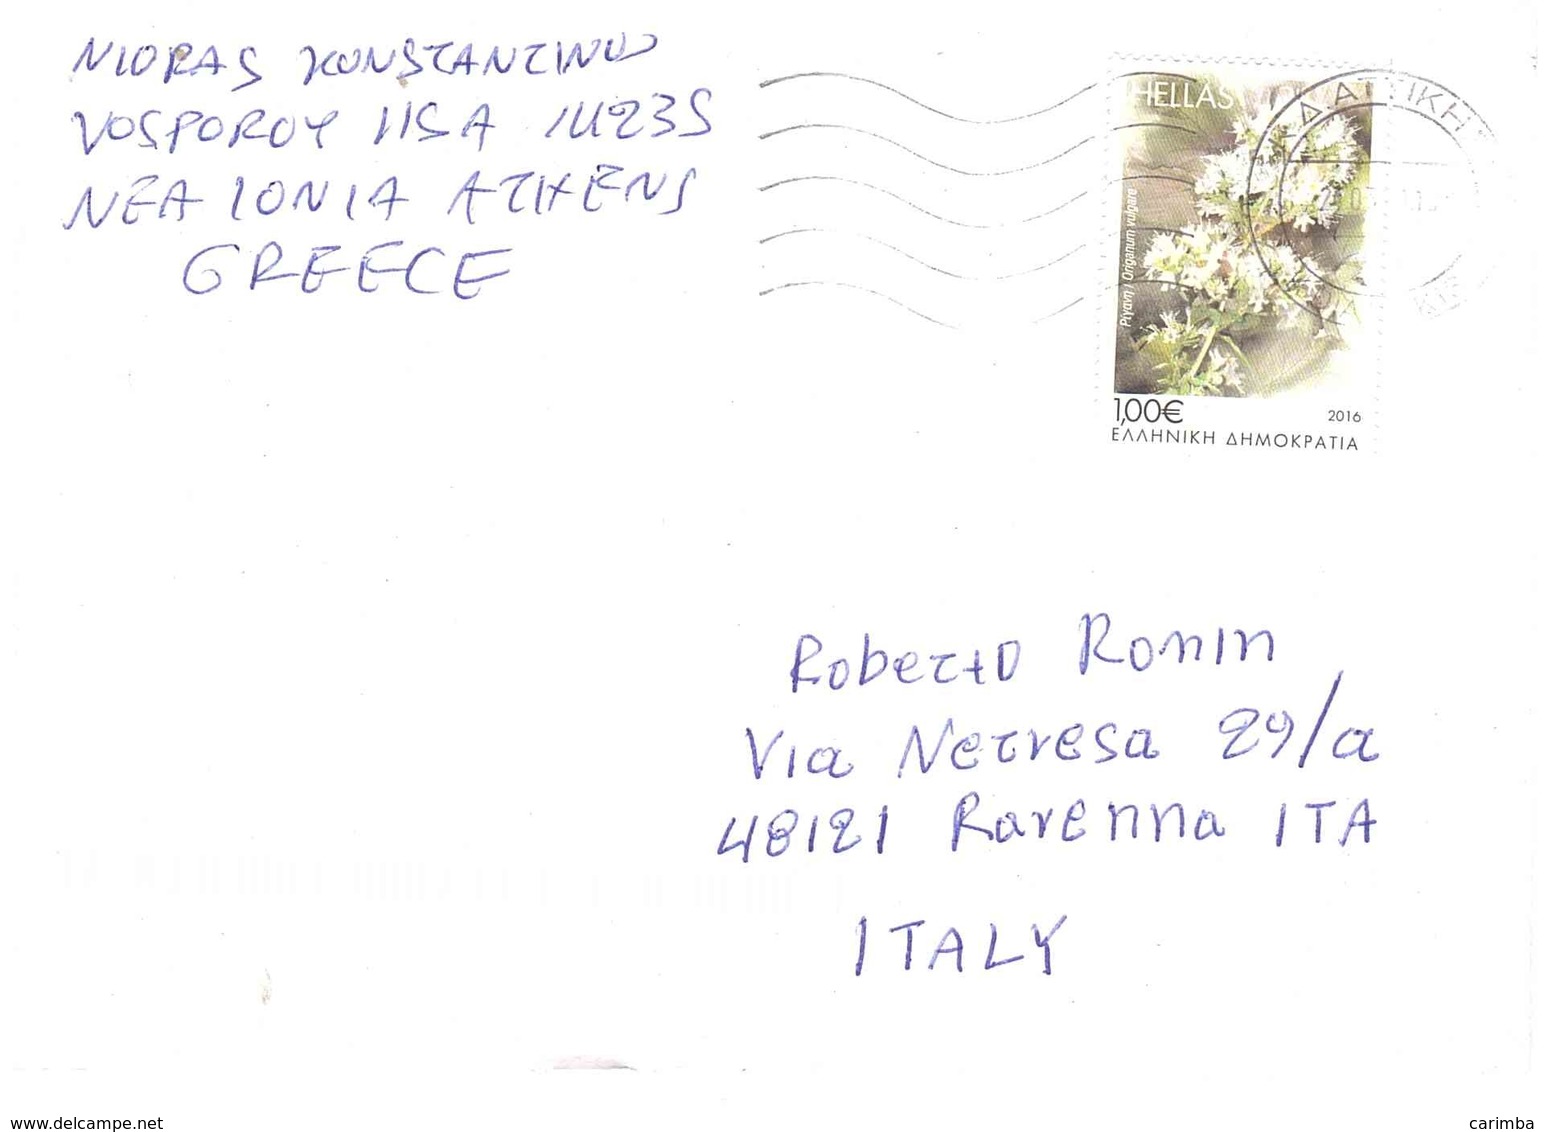 NIORAS KONSTANTINOS
VOSPOROY 115A 14235
NEA IONIA ATHENS
GREECE
HELLAS
Ρίγανη / Origanum vulgare
1,00€ 2016
ΕΛΛΗΝΙΚΗ ΔΗΜΟΚΡΑΤΙΑ
ΑΤΤΙΚΗ
Roberto Ronin
Via Netresa 29/a
48121 Ravenna ITA
ITALY
www.delcampe.net
carimba